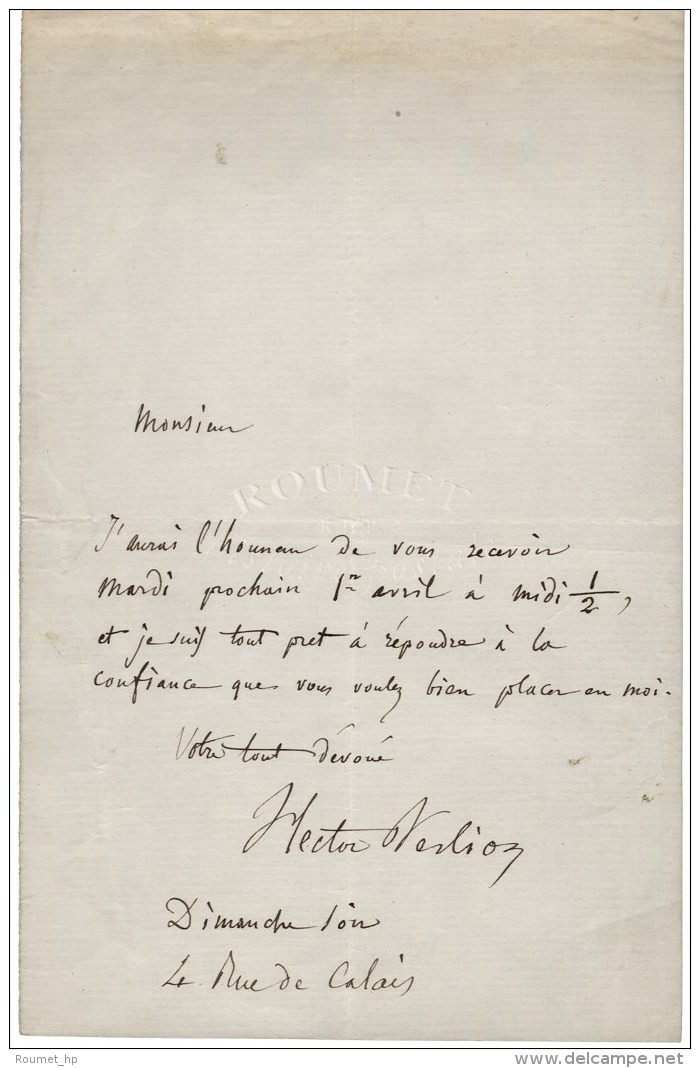 Monsieur
ROUMET
J'aurai l'honneur de vous recevoir
mardi prochain 1er avril à midi 1/2,
et je suis tout pret à répondre à la
confiance que vous voulez bien placer en moi.
Votre tout dévoué
Hector Berlioz
Dimanche soir
4 Rue de Calais
Roumet_hp
www.delcampe.net